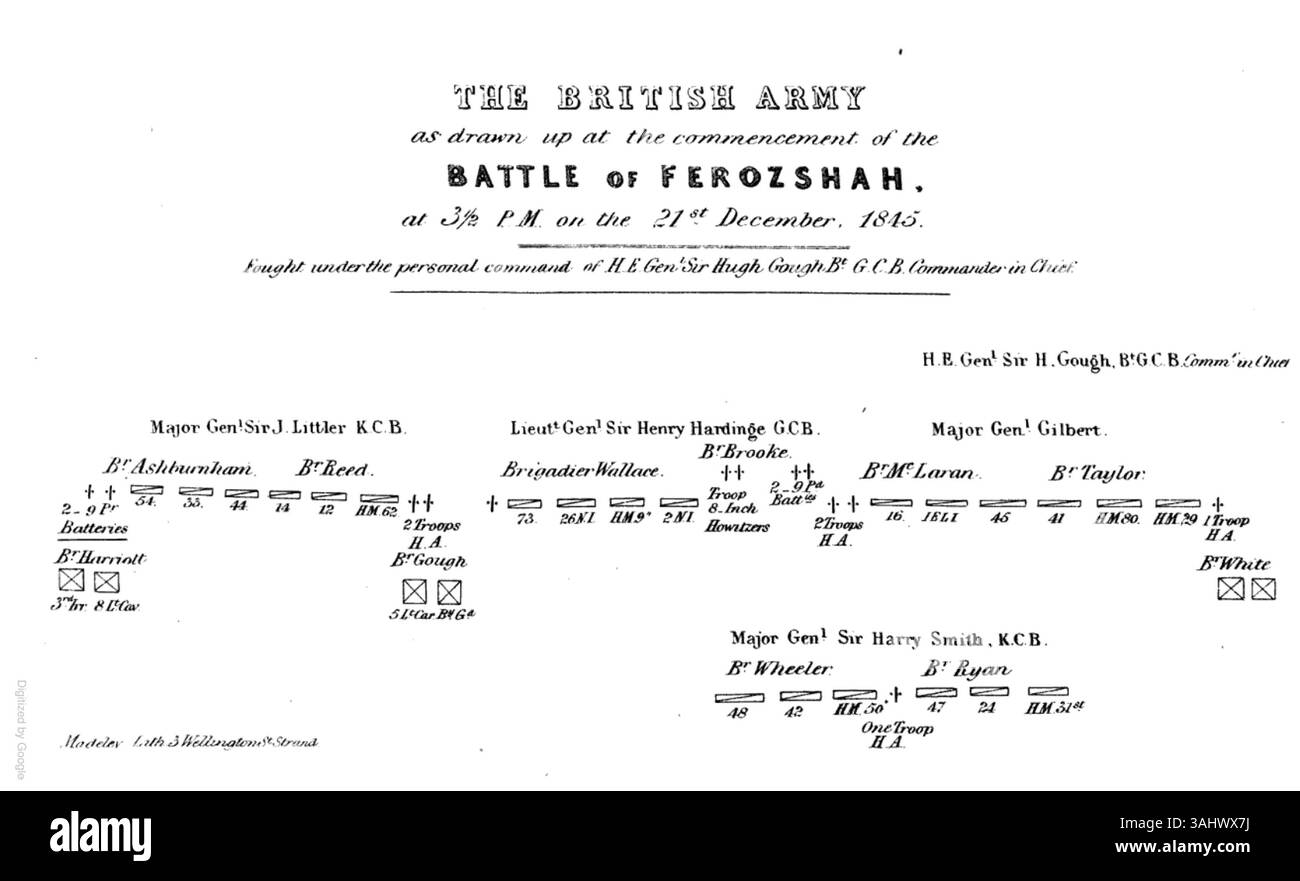 THE BRITISH ARMY
as drawn up at the commencement of the
BATTLE OF FEROZSHAH,
at 3½ P.M. on the 21st December, 1845.
Fought under the personal command of H.E. Genl Sir Hugh Gough Bt G.C.B. Commander in Chief.
H.E. Genl Sir H. Gough, Bt G.C.B. Commr in Chief
Major Genl Sir J. Littler K.C.B.
Lieutt Genl Sir Henry Hardinge G.C.B.
Major Genl Gilbert.
Br Ashburnham. Br Reed.
54. 33. 44. 14 12 HM.62
2_9 Pr
Batteries
2 Troops
H.A.
Br Harriott
3rd hr. 8 Lt Cav.
Br Gough
5 Lt Cav By Gd
Brigadier Wallace. Br Brooke.
73. 26 N.I. HM.9th 2 N.I.
Troop
8-Inch
Howitzers
2_9 Pd
Batties
2 Troops
H.A.
Br Mc Laran. Br Taylor.
16. 1 E L I 45 41 HM.80. HM.29
1 Troop
H.A.
Br White
Major Genl Sir Harry Smith, K.C.B.
Br Wheeler. Br Ryan
48 42 HM.50 47 24 HM.31st
One Troop
H.A.
Madeley Lith 3 Wellington St Strand
Digitized by Google
alamy
Image ID: 3AHWX7J
www.alamy.com